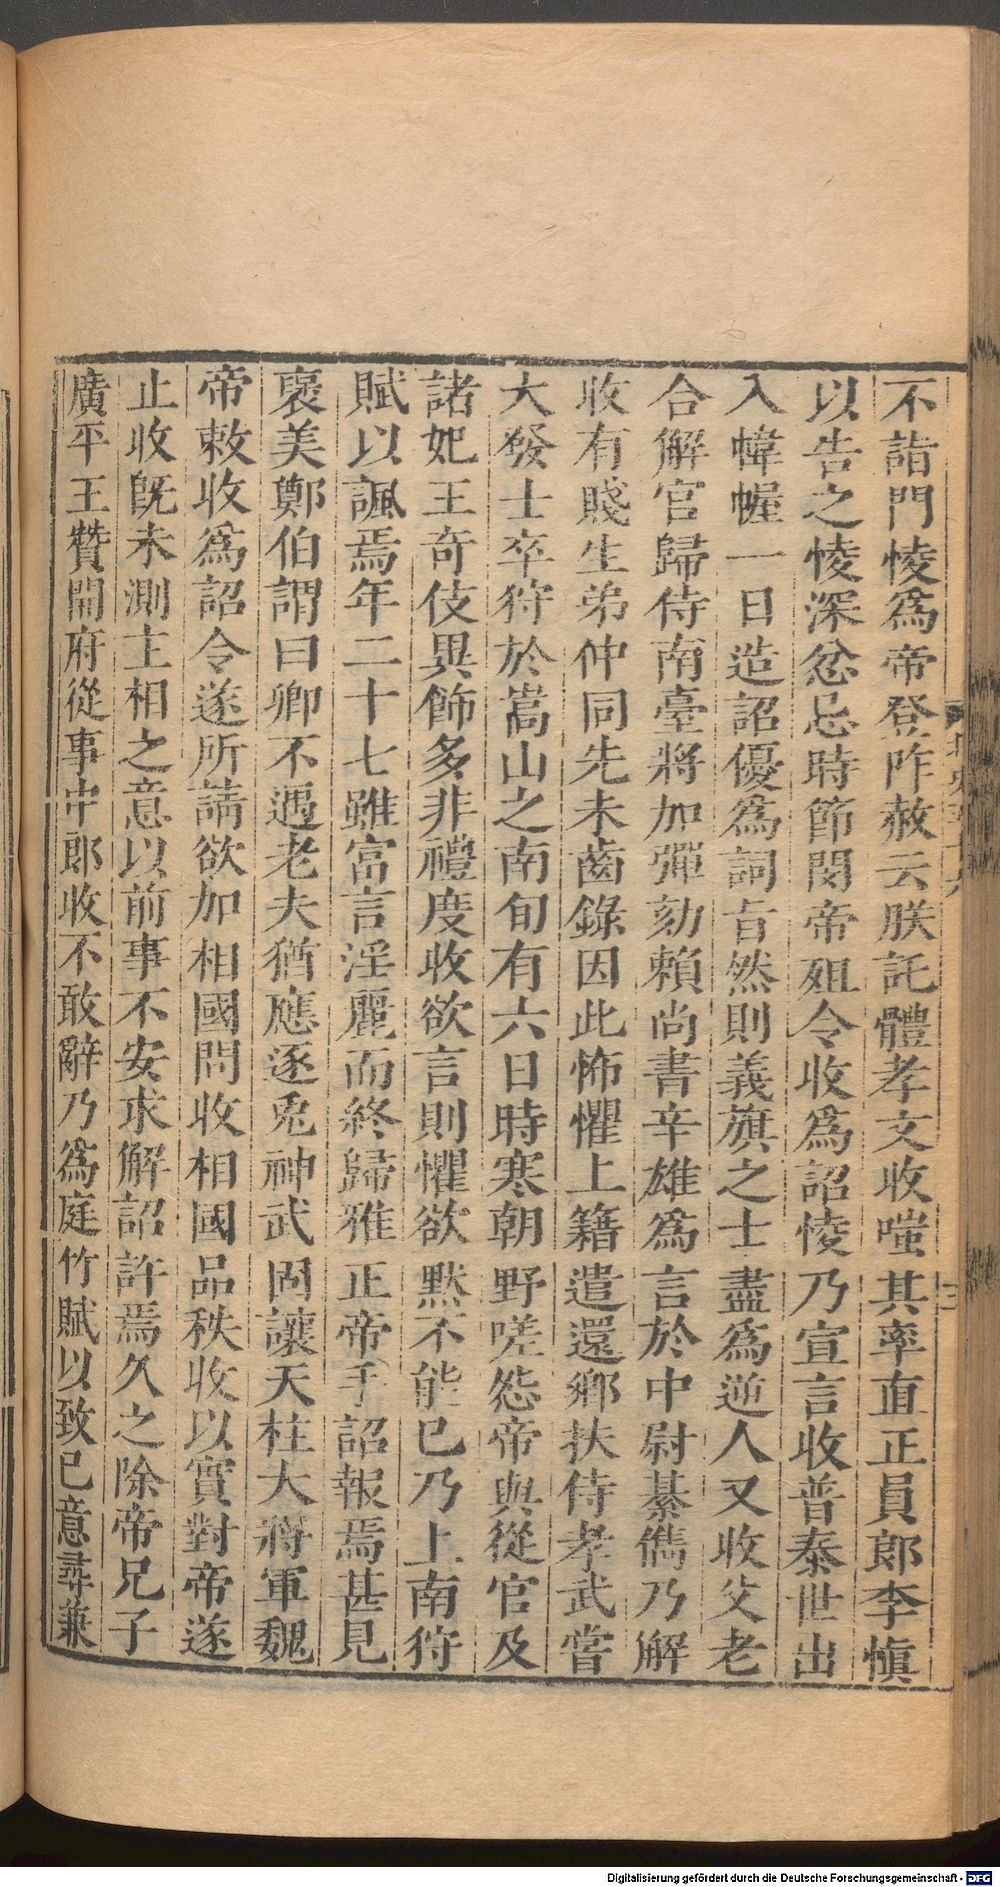 不詣門悛爲帝登阼赦云朕託體孝文收嗤其率直正員郎李愼
以告之悛深忿忌時節閔帝殂令收爲詔悛乃宣言收普泰世出
入幃幄一日造詔優爲詞旨然則義旗之士盡爲逆人又收父老
合解官歸侍南臺將加彈劾賴尚書辛雄爲言於中尉綦儁乃解
收有賤生弟仲同先未齒錄因此怖懼上籍遣還鄉扶侍孝武嘗
大發士卒狩於嵩山之南旬有六日時寒朝野嗟怨帝與從官及
諸妃王奇伎異飾多非禮度收欲言則懼欲默不能已乃上南狩
賦以諷焉年二十七雖富言淫麗而終歸雅正帝手詔報焉甚見
襃美鄭伯謂曰卿不遇老夫猶應逐兎神武固讓天柱大將軍魏
帝敕收爲詔令遂所請欲加相國問收相國品秩收以實對帝遂
止收旣未測主相之意以前事不安求解詔許焉久之除帝兄子
廣平王贊開府從事中郎收不敢辭乃爲庭竹賦以致已意尋兼
Digitalisierung gefördert durch die Deutsche Forschungsgemeinschaft - DFG